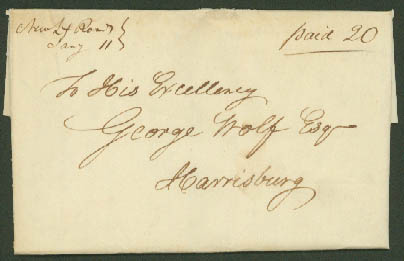 Jany 11
paid 20
To His Excellency
George Wolf Esqr
Harrisburg